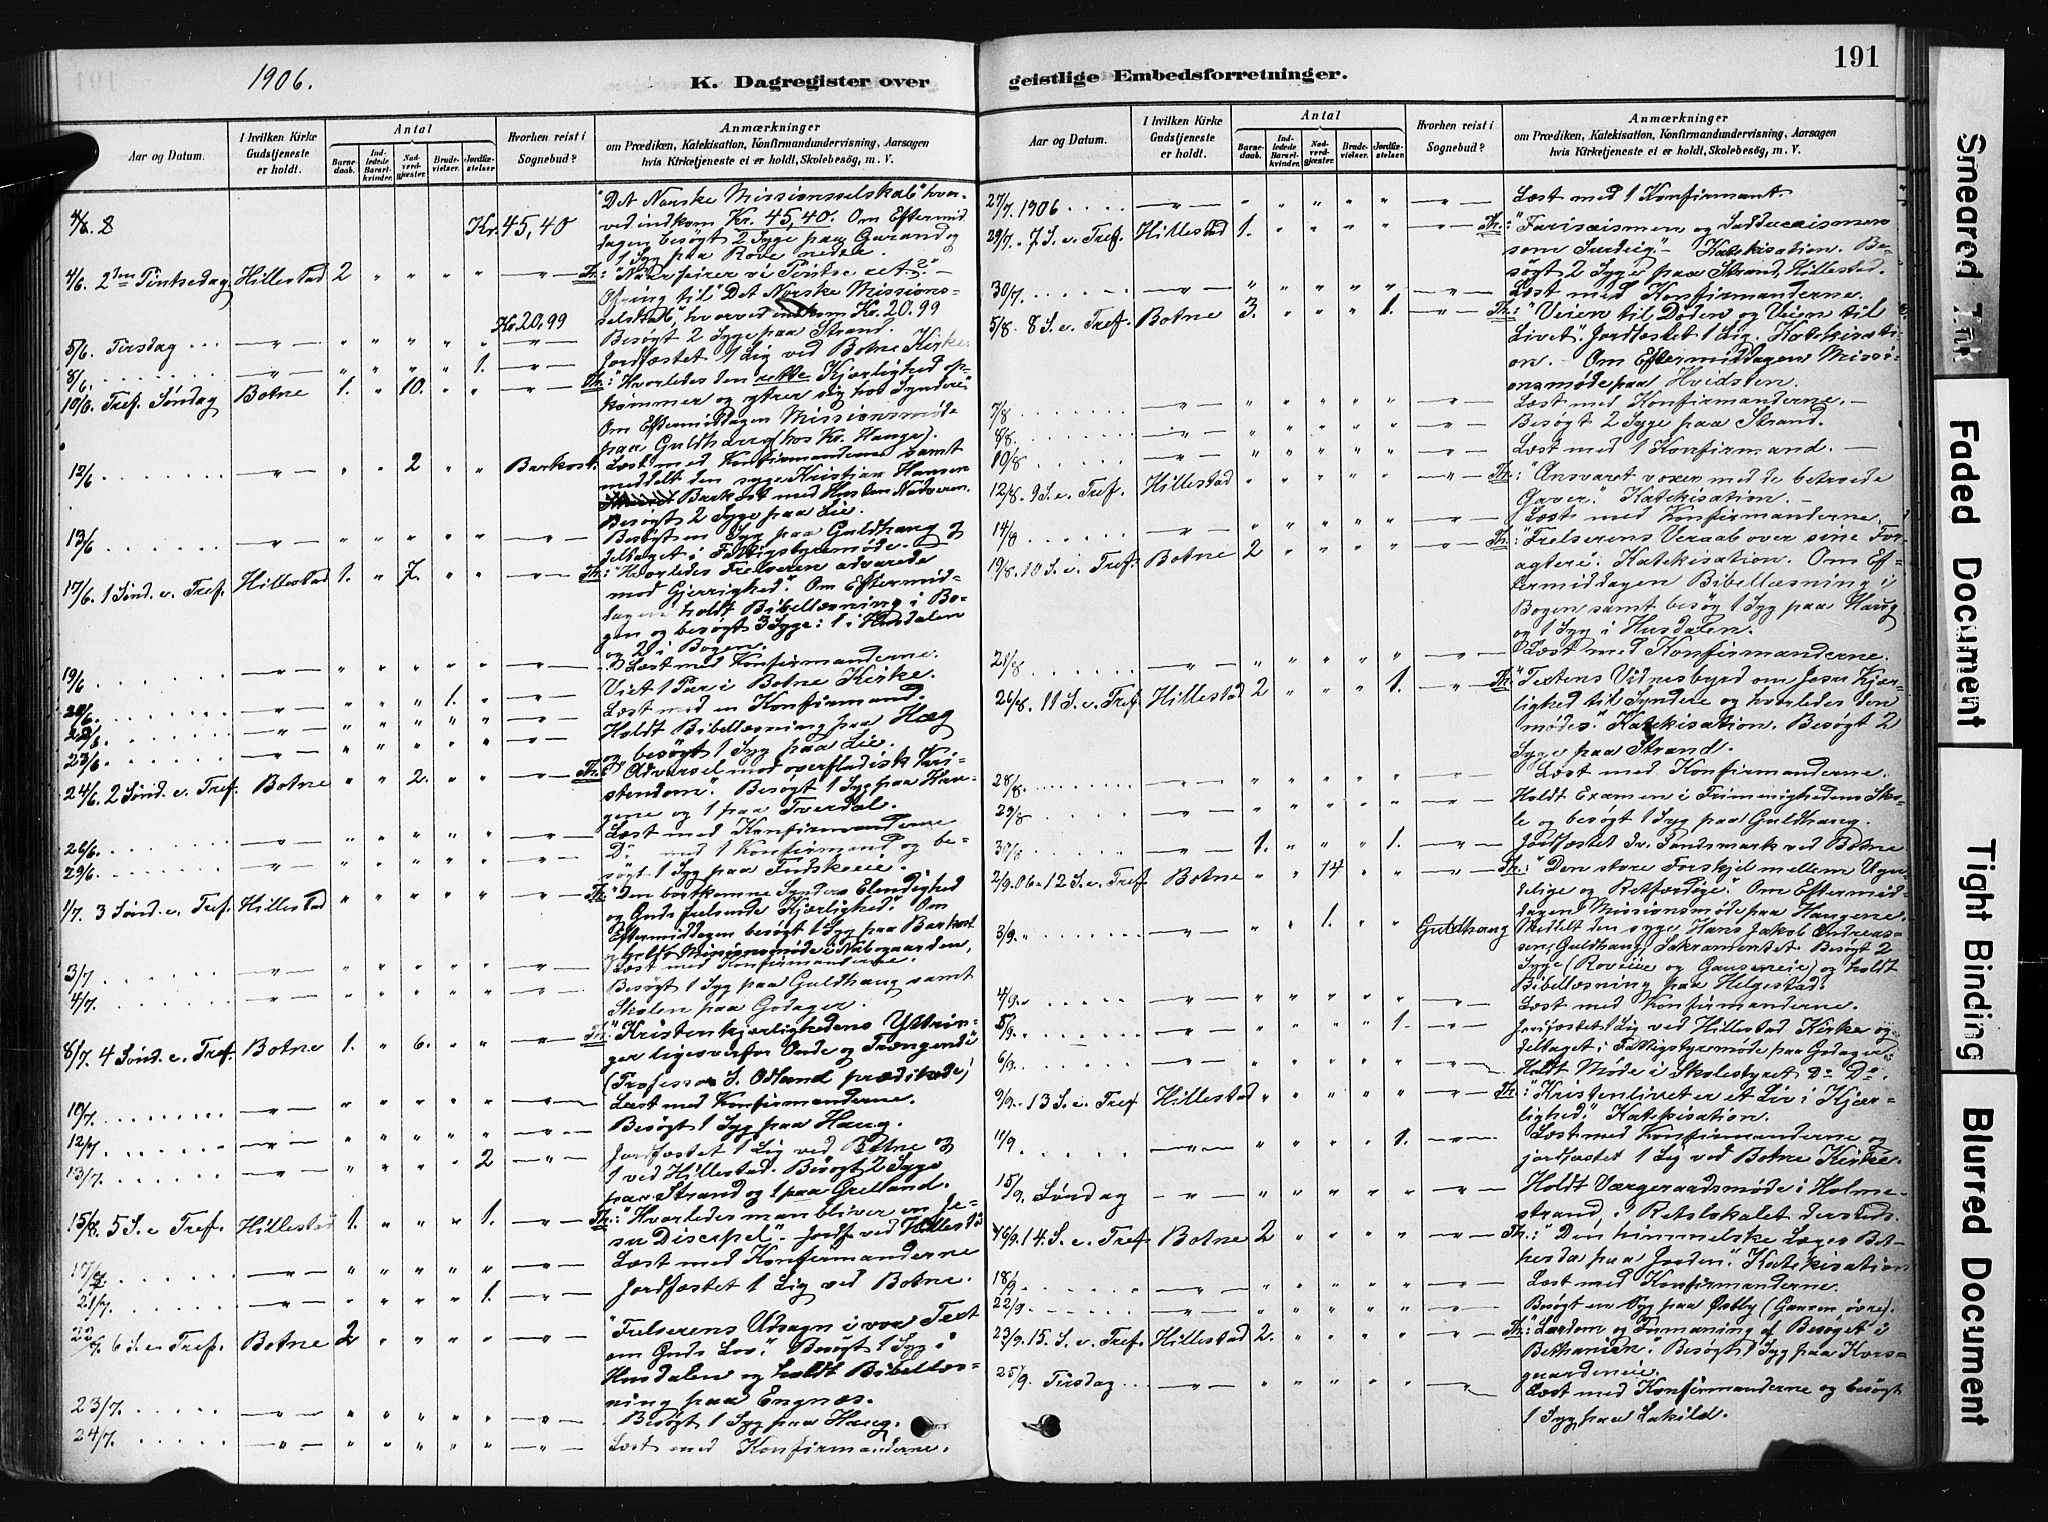 1906.
K. Dagregister over
Aar og Datum.
I hvilken Kirke Gudstjeneste er holdt.
Antal
Barnedaab.
Indledede Barselkvinder.
Nadverdgjæster.
Brudevielser.
Jordfæstelser
Hvorhen reist i Sognebud?
Anmærkninger
om Prædiken, Katekisation, Konfirmandundervisning, Aarsagen
hvis Kirketjeneste ei er holdt, Skolebesøg, m. V.
"Det Norske Missionsselskab" hvor-
Kr. 45,40 ved indkom Kr. 45,40. Om Eftermid
dagen besøgt 2 Syge paa Garand og
1 Syg paa Rove nedre.
4/6. 2den Pintsedag Hillestad 2 " " " " Th: "Naar feirer vi Pintse ret?" –
Ofring til "Det Norske Missions-
Kr. 20,99 selskab", hvorved indkom Kr. 20.99
5/6. Tirsdag " " " " " Besøgt 2 Syge paa Strand.
8/6. " " " " 1. Jordfæstet 1 Lig ved Botne Kirke.
10/6. Tref. Søndag Botne 1. " 10. " " Th: "Hvorledes den rette Kjærlighed op-
kommer og ytrer sig hos Syndere"
Om Eftermiddagen Missionsmøde
paa Guldhaug (hos Kr. Hauge).
12/6 " " 2 " " Barkost. Læst med Konfirmanderne samt
meddelt den syge Kristian Hansen
Barkost med Hustru Nadveren.
Besøgt 2 Syge paa Lie.
13/6 " " " " " Besøgt en Syg paa Guldhaug og
deltaget i Fattigstyremøde.
17/6. 1 Sønd. e. Tref. Hillestad 1. " 7. " " Th: "Hvorledes Frelseren advarede
mod Gjerrighed". Om Eftermid-
dagen holdt Bibellæsning i Bo-
gen og besøgt 3 Syge: 1 i Husdalen
og 2 i Bogen.
19/6 " " " " " Læst med Konfirmanderne.
" " " 1. " Viet 1 Par i Botne Kirke.
22/6. " " " " " Læst med en Konfirmand.
23/6. " " " " " Holdt Bibellæsning paa Hæg
og besøgt 1 Syg paa Lie.
24/6. 2 Sønd. e. Tref. Botne " " 2. " " Th: "Advarsel mod overfladisk Kri-
stendom." Besøgt 1 Syg paa Hau-
gene og 1 paa Tverdal.
26/6. " " " " " Læst med Konfirmanderne
29/6. " " " " " Do med 1 Konfirmand og be-
søgt 1 Syg paa
1/7. 3 Sønd. e. Tref. Hillestad " " " " " Th: "Den bortkomne Synders Elendighed
og Guds frelsende Kjærlighed". Om
Eftermiddagen besøgt 1 Syg paa Barkost
og holdt Missionsmøde i Nabogaarden.
3/7 " " " " " Læst med Konfirmanderne.
4/7. " " " " " Besøgt 1 Syg paa Guldhaug samt
Skolen paa Godager.
8/7. 4 Sønd. e. Tref. Botne 1. " 6. " " Th: "Kristenkjærlighedens Yttrin-
ger ligeoverfor Onde og Trængende"
(Professor S. Odland prædikede)
10/7. " " " " " Læst med Konfirmanderne.
12/7 " " " " " Besøgt 1 Syg paa Haug.
13/7. " " " " 2 Jordfæstet 1 Lig ved Botne og
1 ved Hillestad. Besøgt 2 Syge
paa Strand og 1 paa Grelland.
5 S. e. Tref. Hillestad 1. " " " 1. Th: "Hvorledes man bliver en Je-
su Discipel". Jordf. ved Hillestad
17/7. " " " " " Læst med Konfirmanderne
21/7. " " " " 1. Jordfæstet 1 Lig ved Botne.
22/7. 6 S. e. Tref. Botne 2 " " " " "Frelserens Udsagn i vor Text
om Guds Lov". Besøgt 1 Syg i
Husdalen og holdt Bibellæs-
ning paa Engnæs.
23/7. " " " " " Besøgt 1 Syg paa Haug.
24/7. " " " " " Læst med Konfirmanderne.
geistlige Embedsforretninger.
191
Aar og Datum.
I hvilken Kirke Gudstjeneste er holdt.
Antal
Barnedaab.
Indledede Barselkvinder.
Nadverdgjæster.
Brudevielser.
Jordfæstelser.
Hvorhen reist i Sognebud?
Anmærkninger
om Prædiken, Katekisation, Konfirmandundervisning, Aarsagen
hvis Kirketjeneste ei er holdt, Skolebesøg, m. V.
27/7. 1906 " " " " " Læst med 1 Konfirmant.
29/7. 7 S. e. Tref. Hillestad 1. " " " " Th: "Farisæismen og Sadducæismen
som Surdeig" – Katekisation. Be-
søgt 2 Syge paa Strand, Hillestad.
30/7. " " " " " Læst med Konfirmanderne.
5/8. 8 S. e. Tref. Botne 3. " " " 1. Th: "Veien til Døden og Veien til
Livet". Jordfæstet 1 Lig. Katekisati-
on. – Om Eftermiddagen Missi-
onsmøde paa Hvidsten.
7/8 " " " " " Læst med Konfirmanderne. –
8/8. " " " " " Besøgt 2 Syge paa Strand.
10/8 " " " " " Læst med 1 Konfirmand. –
12/8. 9 S. e. Tref. Hillestad " " " " " Th: "Ansvaret voxer med de betroede
Gaver". Katekisation. –
14/8 " " " " " Læst med Konfirmanderne.
19/8. 10 S. e. Tref. Botne 2 " " " " Th: "Frelserens Veraab over sine For-
agtere". Katekisation. Om Ef-
termiddagen Bibellæsning i
Bogen samt besøg 1 Syg paa Haug
og 1 Syg i Husdalen.
21/8 " " " " " Læst med Konfirmanderne.
26/8. 11 S. e. Tref. Hillestad 2 " " " 1. Th: "Textens Vidnesbyrd om Jesu Kjær-
lighed til Syndere og hvorledes den
mødes". Katekisation. Besøgt 2
Syge paa Strand.
28/8. " " " " " Læst med Konfirmanderne.
29/8 " " " " " Holdt Examen i Frimenighedens Sko-
le og besøgt 1 Syg paa Guldhaug.
30/8 1. " " " 1. Jordfæstet Sandsmark ved Botne
2/9. 06 12 S. e. Tref. Botne " " 14 " " Th: "Den store Forskjel mellem Ugu-
delige og Retfærdige". Om Eftermid-
dagen Missionsmøde paa Haugene.
3/9. " " 1. " " Guldhaug Meddelt den syge Hans Jakob Andreas-
sen, Guldhaug, Sakramentet. Besøgt 2
Syge (Roveeie og Gausereeie) og holdt
Bibellæsning paa Helgestad.
4/9. " " " " " Læst med Konfirmanderne.
5/9. " " " " 1. Jordfæstet 1 Lig ved Hillestad Kirke og
deltaget i Fattigstyremøde paa Godager.
6/9. " " " " " Holdt Møde i Skolestyret Do Do.
9/9. 13 S. e. Tref Hillestad " " " " " Th: "Kristenlivet er et Liv i Kjær-
lighed". Katekisation.
11/9 " " " " 1. Læst med Konfirmanderne og
jordfæstet 1 Lig ved Botne Kirke.
15/9. Lørdag " " " " " Holdt Værgeraadsmøde i Holme-
strand, i Retslokalet dersteds.
16/9. 14. S. e. Tref. Botne 2 " " " " Th: "Den himmelske Læges Bet-
hesda paa Jorden". Katekisation
18/9 " " " " " Læst med Konfirmanderne.
22/9. " " " " " Besøgt en Syg paa Østby (Gausen øvre).
23/9. 15. S. e. Tref. Hillestad 2. " " " " Th: "Lærdom og Formaning af Besøget i
Bethanien". Besøgt 1 Syg paa Kors-
gaardeneie.
25/9. Tirsdag " " " " " Læst med Konfirmanderne og besøgt
1 Syg paa Lakild.
Smeared Ink
Faded Document
Tight Binding
Blurred Document